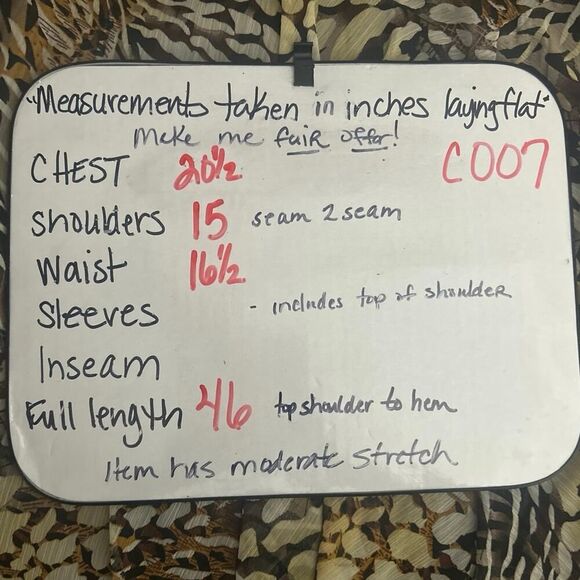 "Measurements taken in inches laying flat"
make me fair offer!
C007
CHEST 20½
Shoulders 15 seam 2 seam
Waist 16½
Sleeves - includes top of shoulder
Inseam
Full length 46 top shoulder to hem
Item has moderate stretch